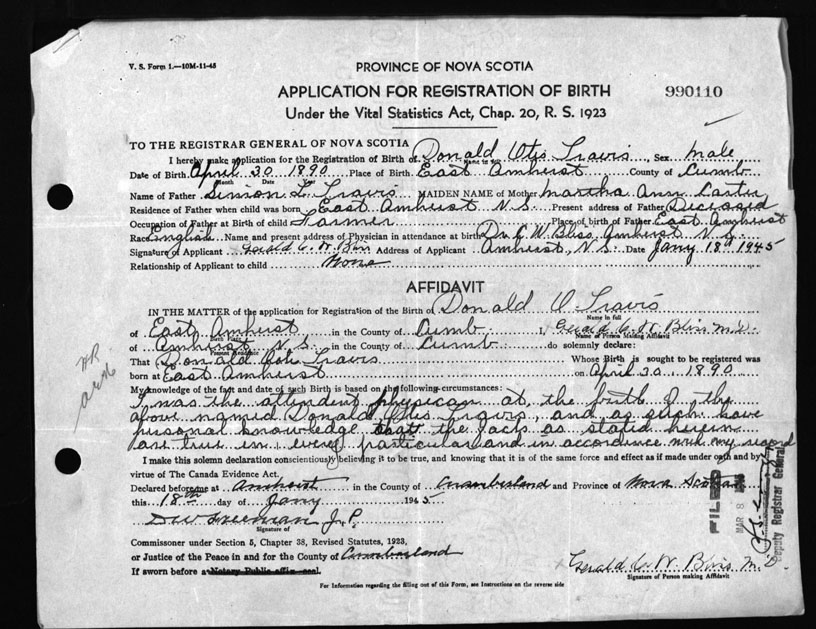 V. S. Form 1.—10M-11-45
PROVINCE OF NOVA SCOTIA
APPLICATION FOR REGISTRATION OF BIRTH
990110
Under the Vital Statistics Act, Chap. 20, R. S. 1923
TO THE REGISTRAR GENERAL OF NOVA SCOTIA
I hereby make application for the Registration of Birth of Donald Otis Travis, Sex male
Name in full
Date of Birth April 30 1890 Place of Birth East Amherst County of Cumb
Month Date Year
Name of Father Simion L. Travis MAIDEN NAME of Mother Martha Ann Carter
Residence of Father when child was born East Amherst N.S. Present address of Father Deceased
Occupation of Father at Birth of child Farmer Place of birth of Father East Amherst
Race English Name and present address of Physician in attendance at birth Dr. C. W. Bliss, Amherst N.S.
Signature of Applicant Gerald C. W. Bliss Address of Applicant Amherst, N.S. Date Jany 18th 1945
Relationship of Applicant to child None
AFFIDAVIT
IN THE MATTER of the application for Registration of the Birth of Donald O. Travis
Name in full
of East Amherst in the County of Cumb I, Gerald C. W. Bliss M.D.
Birth Place Name of Person Making Affidavit
of Amherst N.S. in the County of Cumb do solemnly declare:
Present Residence
That Donald Otis Travis Whose Birth is sought to be registered was
born at East Amherst on April 30 1890
My knowledge of the fact and date of such Birth is based on the following circumstances:
I was the attendent physican at the birth of the
above named Donald Otis Travis, and as such have
personal knowledge that the facts as stated herein
are true in every particular and in accordance with my record
I make this solemn declaration conscientiously believing it to be true, and knowing that it is of the same force and effect as if made under oath and by
virtue of The Canada Evidence Act.
Declared before me at Amherst in the County of Cumberland and Province of Nova Scotia
this 18th day of Jany 1945
Freeman J.P.
Signature of
Commissoner under Section 5, Chapter 38, Revised Statutes, 1923,
or Justice of the Peace in and for the County of Cumberland
If sworn before a Notary Public affix seal.
Gerald C. W. Bliss M.D.
Signature of Person making Affidavit
For Information regarding the filling out of this Form, see Instructions on the reverse side
FILED
MAR 8
Deputy Registrar General